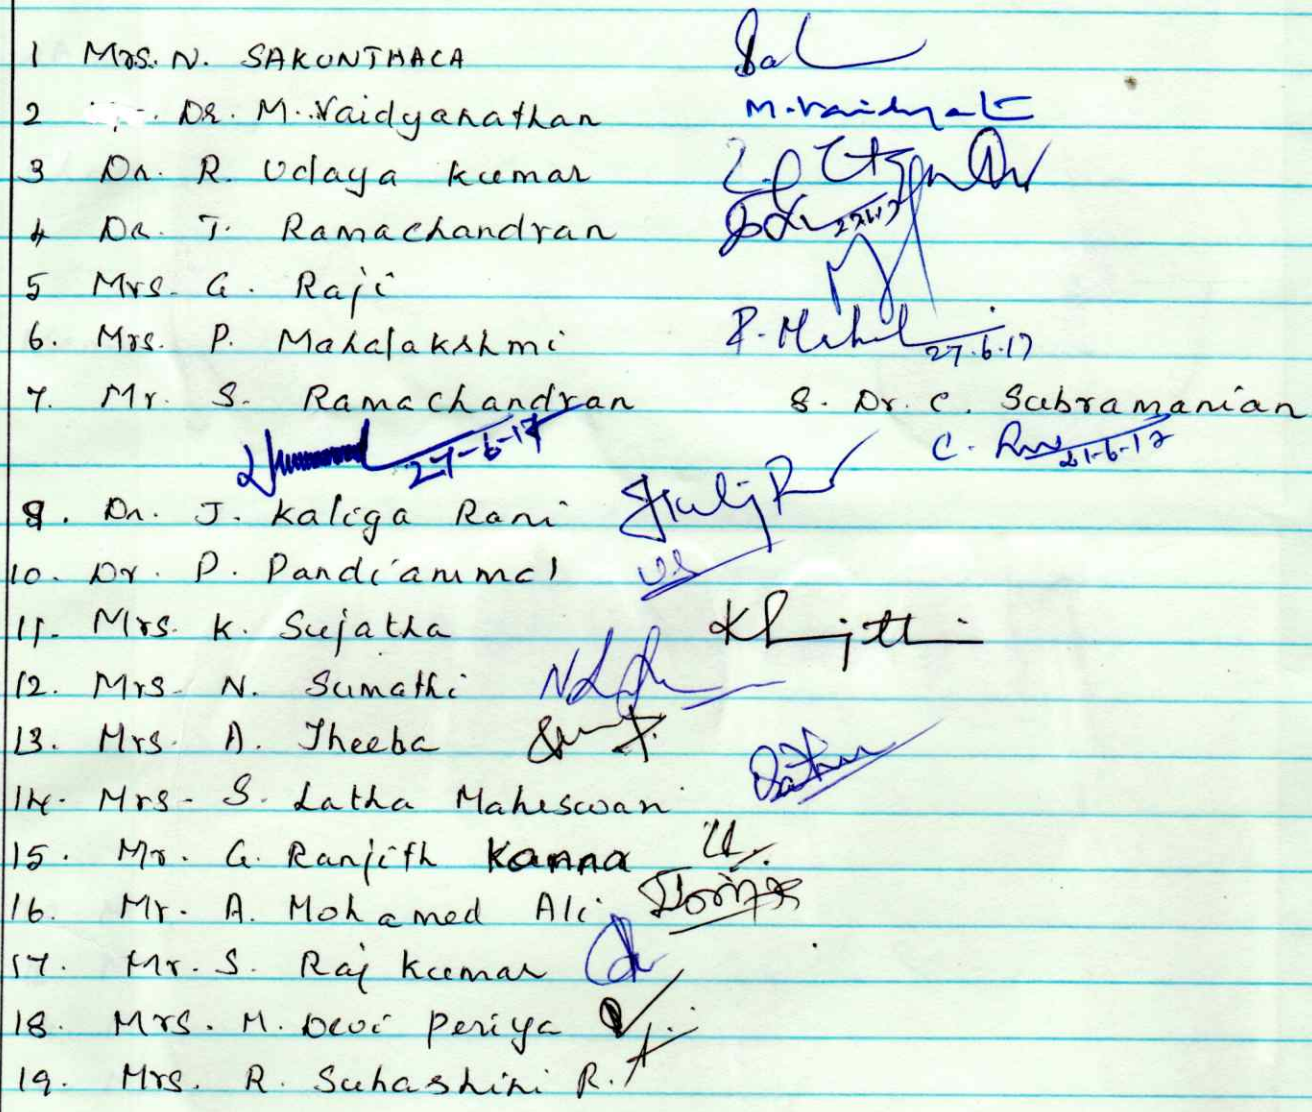 1 Mrs. N. SAKUNTHALA
2 Dr. M. Vaidyanathan M. Vaidyanat
3 Dr. R. Udaya kumar
4 Dr. T. Ramachandran 27.6.17
5 Mrs. G. Raji
6. Mrs. P. Mahalakshmi P. Mahal 27.6.17
7. Mr. S. Ramachandran 8. Dr. C. Subramanian
27-6-17 C.
9. Dr. J. Kaliga Rani
10. Dr. P. Pandiammal
11. Mrs. K. Sujatha
12. Mrs. N. Sumathi
13. Mrs. A. Jheeba
14. Mrs. S. Latha Maheswari
15. Mr. G. Ranjith Kanna
16. Mr. A. Mohamed Ali
17. Mr. S. Raj kumar
18. Mrs. M. Devi Periya
19. Mrs. R. Suhashini R.